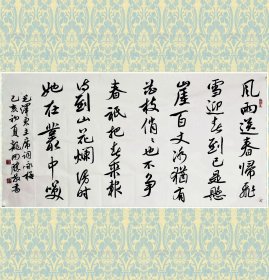 風雨送春歸飛
雪迎春到已是懸
崖百丈冰猶有
花枝俏俏也不争
春祇把春来報
待到山花爛漫時
她在叢中笑
毛澤東主席詞詠梅
己亥初夏龍開勝書